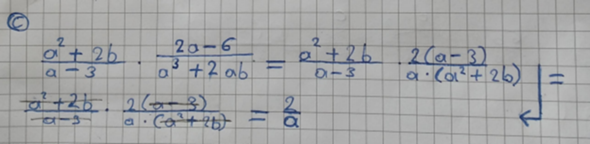 c
(a² + 2b)/(a - 3) · (2a - 6)/(a³ + 2ab) = (a² + 2b)/(a - 3) · 2(a - 3)/(a · (a² + 2b)) =
(a² + 2b)/(a - 3) · 2(a - 3)/(a · (a² + 2b)) = 2/a